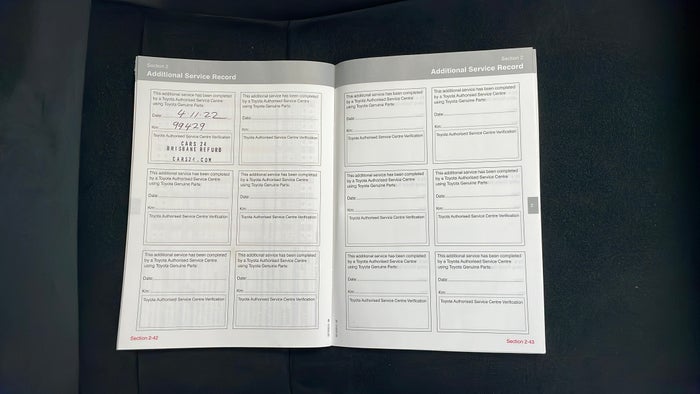 Section 2
Additional Service Record
This additional service has been completed
by a Toyota Authorised Service Centre
using Toyota Genuine Parts:
Date: 4.11.22
Km: 99429
Toyota Authorised Service Centre Verification
CARS 24
BRISBANE REFURB
CARS24.COM
This additional service has been completed
by a Toyota Authorised Service Centre
using Toyota Genuine Parts:
Date:
Km:
Toyota Authorised Service Centre Verification
This additional service has been completed
by a Toyota Authorised Service Centre
using Toyota Genuine Parts:
Date:
Km:
Toyota Authorised Service Centre Verification
This additional service has been completed
by a Toyota Authorised Service Centre
using Toyota Genuine Parts:
Date:
Km:
Toyota Authorised Service Centre Verification
This additional service has been completed
by a Toyota Authorised Service Centre
using Toyota Genuine Parts:
Date:
Km:
Toyota Authorised Service Centre Verification
This additional service has been completed
by a Toyota Authorised Service Centre
using Toyota Genuine Parts:
Date:
Km:
Toyota Authorised Service Centre Verification
Section 2-42
Section 2
Additional Service Record
This additional service has been completed
by a Toyota Authorised Service Centre
using Toyota Genuine Parts:
Date:
Km:
Toyota Authorised Service Centre Verification
This additional service has been completed
by a Toyota Authorised Service Centre
using Toyota Genuine Parts:
Date:
Km:
Toyota Authorised Service Centre Verification
This additional service has been completed
by a Toyota Authorised Service Centre
using Toyota Genuine Parts:
Date:
Km:
Toyota Authorised Service Centre Verification
This additional service has been completed
by a Toyota Authorised Service Centre
using Toyota Genuine Parts:
Date:
Km:
Toyota Authorised Service Centre Verification
This additional service has been completed
by a Toyota Authorised Service Centre
using Toyota Genuine Parts:
Date:
Km:
Toyota Authorised Service Centre Verification
This additional service has been completed
by a Toyota Authorised Service Centre
using Toyota Genuine Parts:
Date:
Km:
Toyota Authorised Service Centre Verification
Section 2-43